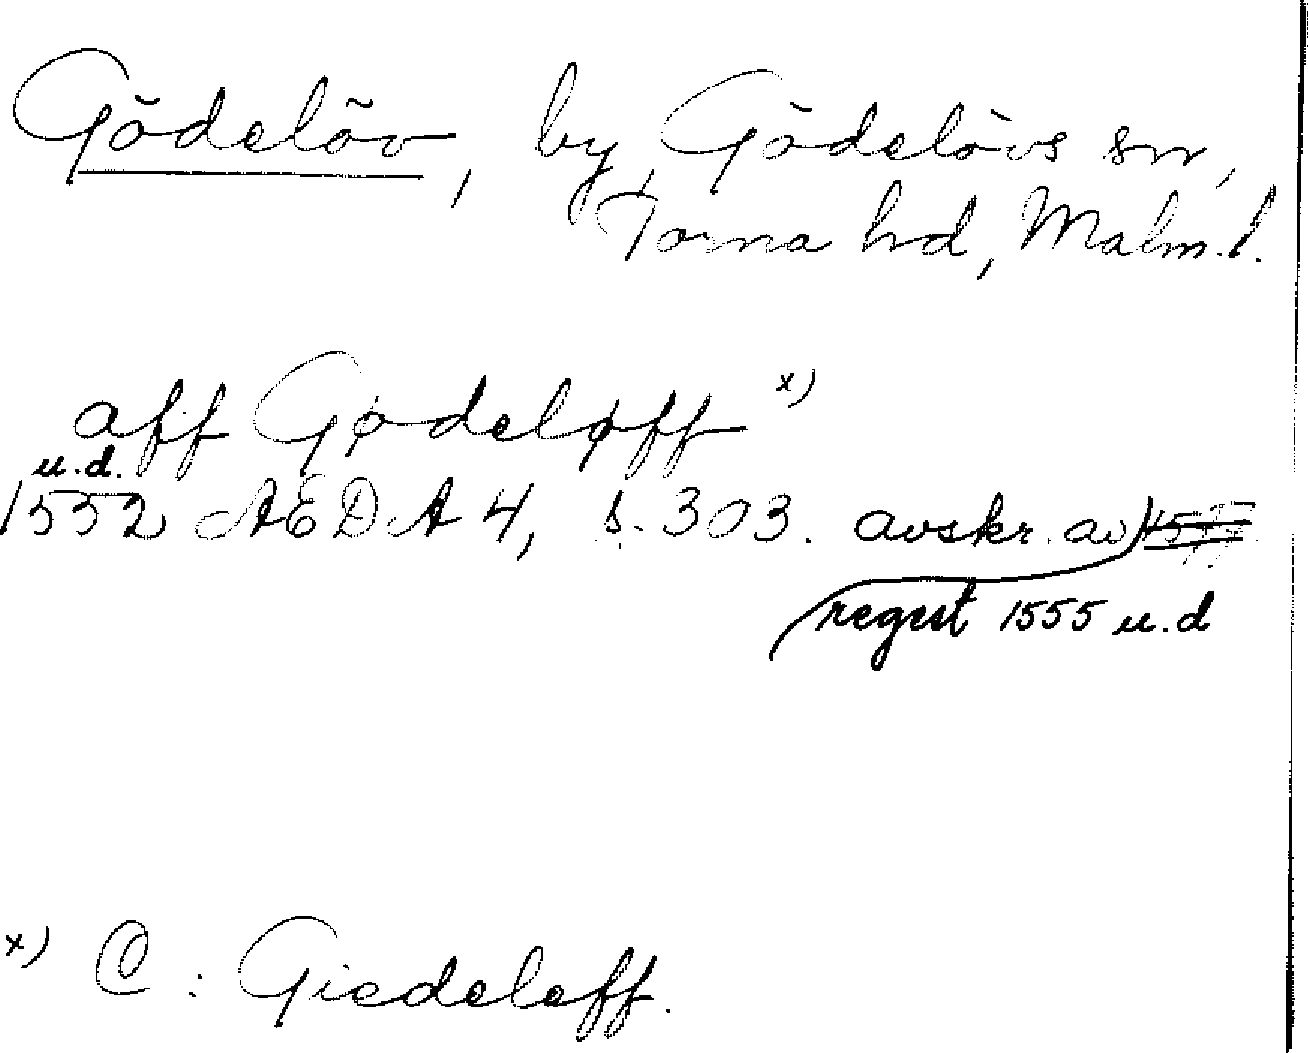 Gödelöv, by, Gödelövs sn,
Torna hd, Malm. l.
aff Gødeløff x)
u.d.
1552 AEDA 4, s. 303. avskr. av
regest 1555 u.d
x) C : Giedeleff.